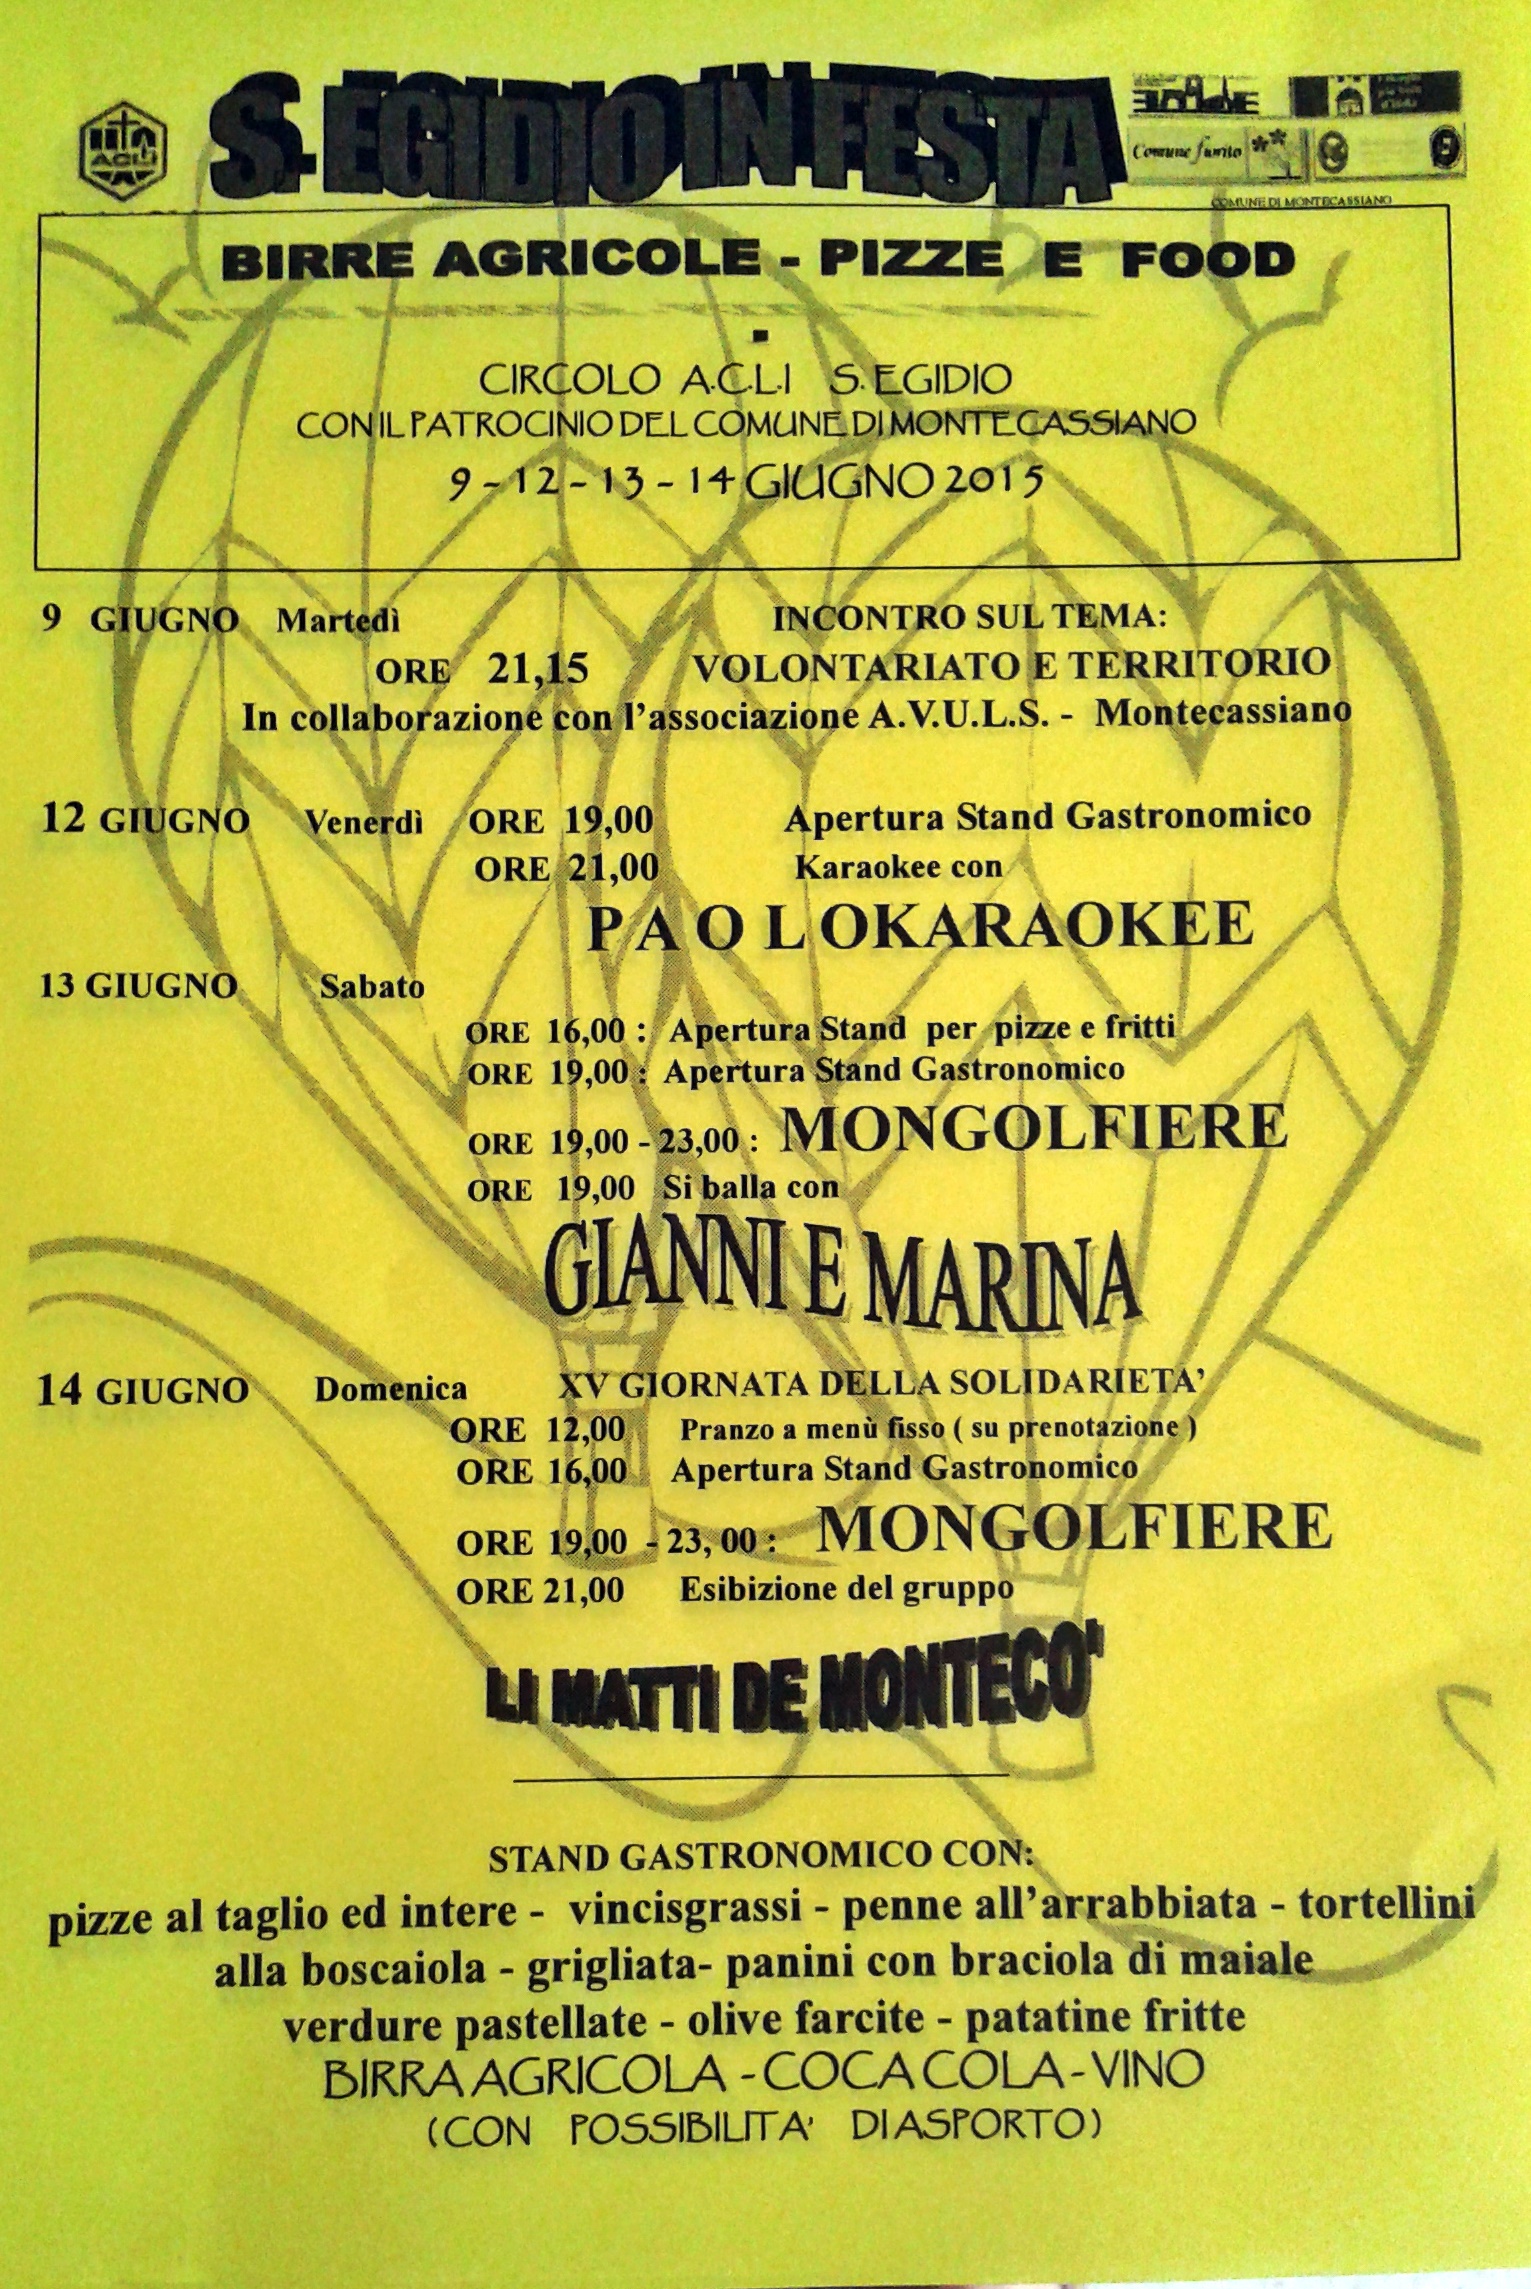 S. EGIDIO IN FESTA
ACLI
Comune fiorito
COMUNE DI MONTECASSIANO
BIRRE AGRICOLE - PIZZE E FOOD
CIRCOLO A.C.L.I S. EGIDIO
CON IL PATROCINIO DEL COMUNE DI MONTECASSIANO
9 - 12 - 13 - 14 GIUGNO 2015
9 GIUGNO Martedì INCONTRO SUL TEMA:
ORE 21,15 VOLONTARIATO E TERRITORIO
In collaborazione con l'associazione A.V.U.L.S. - Montecassiano
12 GIUGNO Venerdì ORE 19,00 Apertura Stand Gastronomico
ORE 21,00 Karaokee con
P A O L OKARAOKEE
13 GIUGNO Sabato
ORE 16,00 : Apertura Stand per pizze e fritti
ORE 19,00 : Apertura Stand Gastronomico
ORE 19,00 - 23,00 : MONGOLFIERE
ORE 19,00 Si balla con
GIANNI E MARINA
14 GIUGNO Domenica XV GIORNATA DELLA SOLIDARIETA'
ORE 12,00 Pranzo a menù fisso ( su prenotazione )
ORE 16,00 Apertura Stand Gastronomico
ORE 19,00 - 23, 00 : MONGOLFIERE
ORE 21,00 Esibizione del gruppo
LI MATTI DE MONTECO'
STAND GASTRONOMICO CON:
pizze al taglio ed intere - vincisgrassi - penne all'arrabbiata - tortellini
alla boscaiola - grigliata- panini con braciola di maiale
verdure pastellate - olive farcite - patatine fritte
BIRRA AGRICOLA - COCA COLA - VINO
(CON POSSIBILITA' DI ASPORTO)